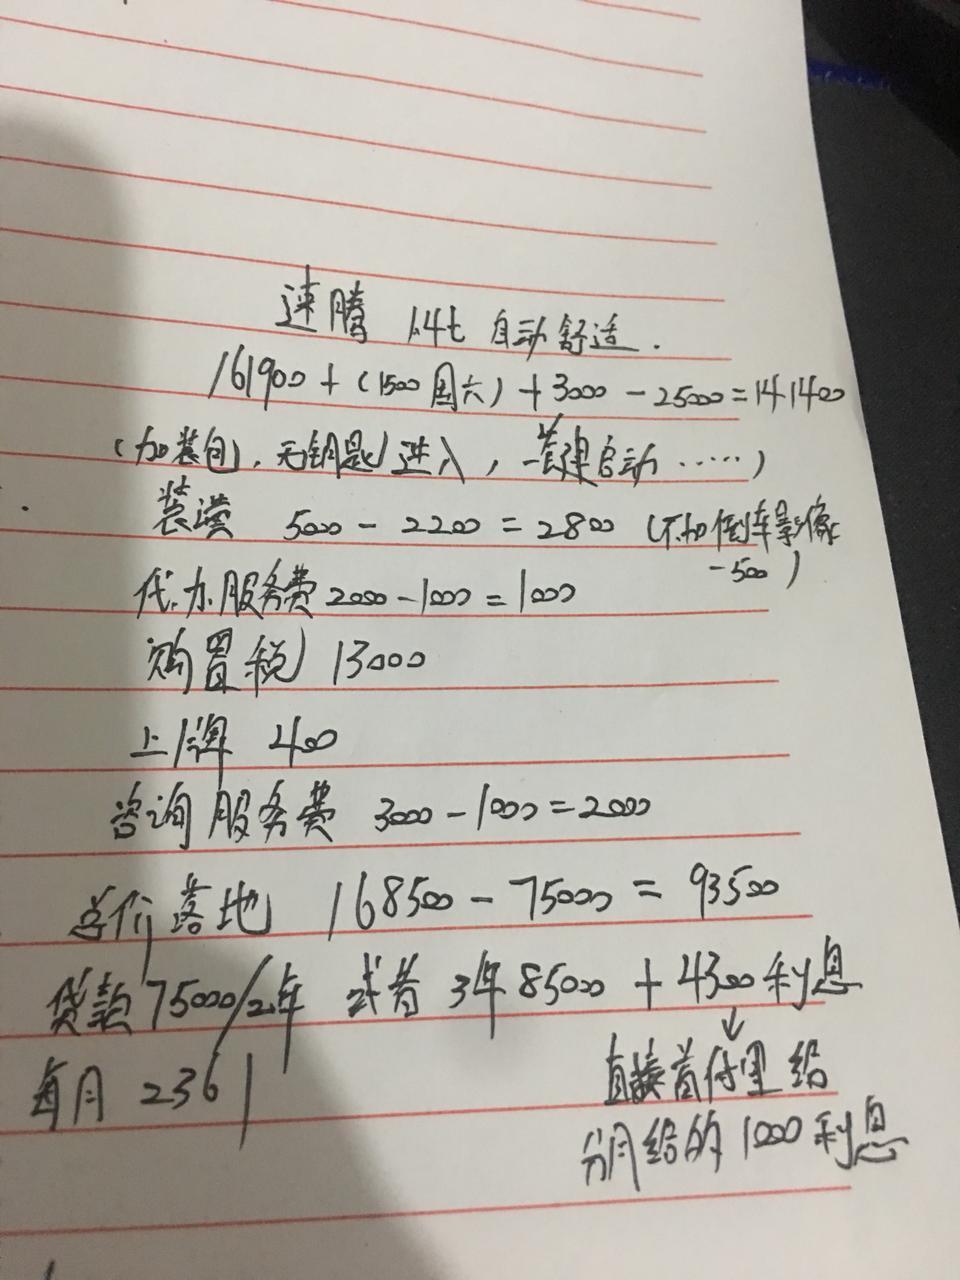 速腾 1.4t 自动舒适.
161900+(1500周六)+3000-25000=141400
(加装包, 无钥匙进入, 一键启动……)
装潢 5000-2200=2800 (不加倒车影像
-500)
代办服务费2000-1000=1000
购置税 13000
上牌 400
咨询服务费 3000-1000=2000
总价落地 168500-75000=93500
贷款75000/2年 或者 3年85000+4300利息
↓
每月 2361 直接首付里给
分月给的1000利息